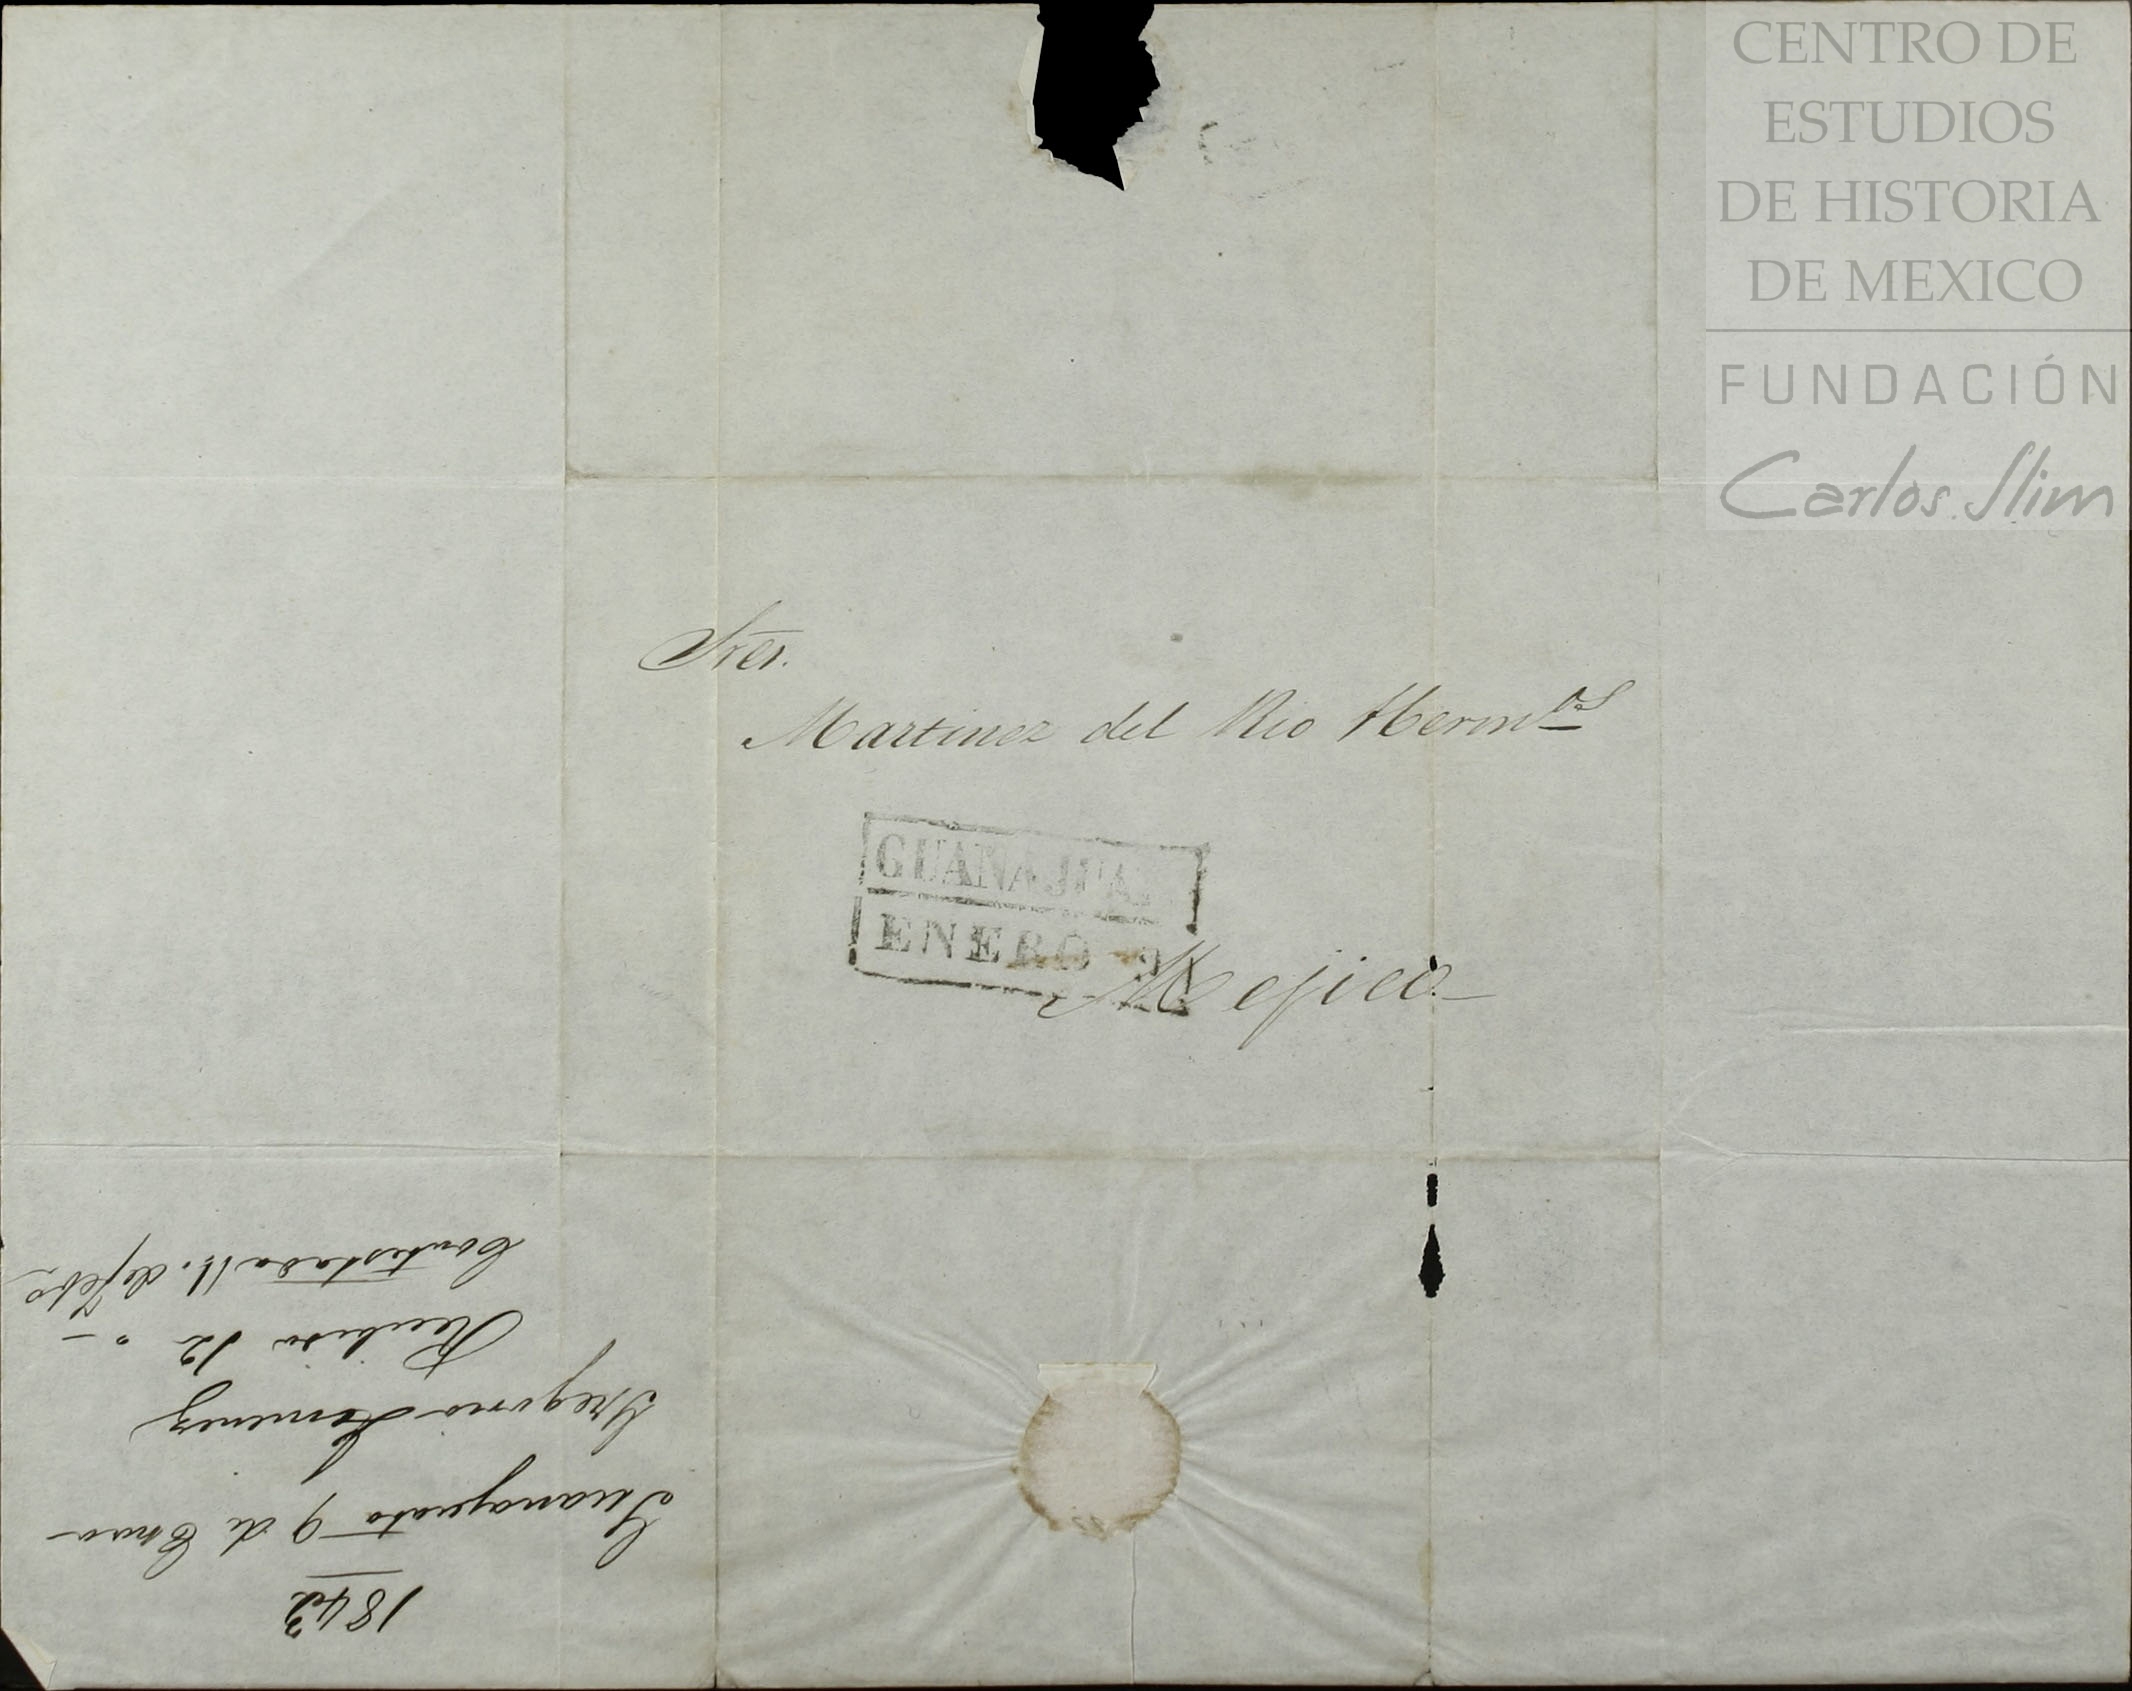 CENTRO DE
ESTUDIOS
DE HISTORIA
DE MEXICO
FUNDACIÓN
Carlos Slim
Sres.
Martinez del Rio Herm.os
GUANAJUA
ENERO 9
Mejico
1843
Guanajuato 9 de Enero
Gregorio Jimenez
Recibida 12 "
Contestada 11. de Feb.o